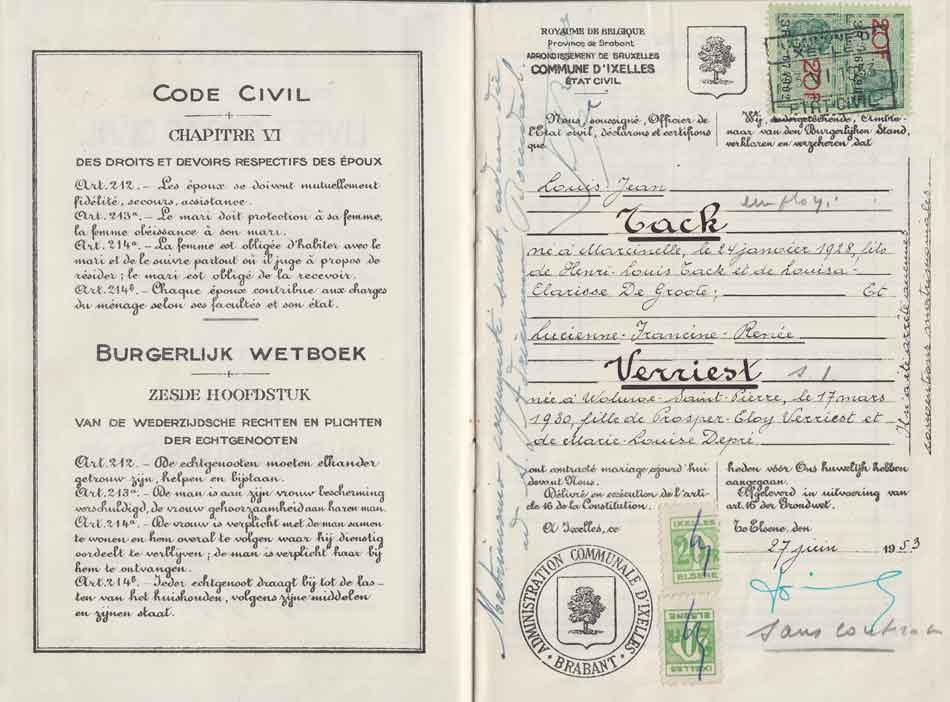 CODE CIVIL
CHAPITRE VI
DES DROITS ET DEVOIRS RESPECTIFS DES ÉPOUX
Art. 212. - Les époux se doivent mutuellement
fidélité, secours, assistance.
Art. 213ª. - Le mari doit protection à sa femme,
la femme obéissance à son mari.
Art. 214ª. - La femme est obligée d'habiter avec le
mari et de le suivre partout où il juge à propos de
résider; le mari est obligé de la recevoir.
Art. 214ᵇ. - Chaque époux contribue aux charges
du ménage selon ses facultés et son état.
BURGERLIJK WETBOEK
ZESDE HOOFDSTUK
VAN DE WEDERZIJDSCHE RECHTEN EN PLICHTEN
DER ECHTGENOOTEN
Art. 212. - De echtgenooten moeten elkander
getrouw zijn, helpen en bijstaan.
Art. 213ª. - De man is aan zijn vrouw bescherming
verschuldigd, de vrouw gehoorzaamheid aan haren man.
Art. 214ª. - De vrouw is verplicht met de man samen
te wonen en hem overal te volgen waar hij dienstig
oordeelt te verblijven; de man is verplicht haar bij
hem te ontvangen.
Art. 214ᵇ. - Ieder echtgenoot draagt bij tot de las-
ten van het huishouden, volgens zijne middelen
en zijnen staat.
ROYAUME DE BELGIQUE
Province de Brabant
ARRONDISSEMENT DE BRUXELLES
COMMUNE D'IXELLES
ÉTAT CIVIL
20F
20F
ETAT-CIVIL
Nous, soussigné, Officier de
l'État civil, déclarons et certifions
que
Wij, ondergeteekende, Ambte-
naar van den Burgerlijken Stand,
verklaren en verzekeren dat
Louis-Jean
employé
Tack
né à Marcinelle, le 24 janvier 1928, fils
de Henri-Louis Tack et de Louisa-
Clarisse De Groote; Et
Lucienne-Francine-Renée
Verriest s.p.
née à Woluwe-Saint-Pierre, le 17 mars
1930, fille de Prosper-Eloy Verriest et
de Marie-Louise Depré.
Il n'a été arrêté aucunes
conventions matrimoniales.
ont contracté mariage ajourd'hui
devant Nous.
Délivré en exécution de l'arti-
cle 16 de la Constitution.
A Ixelles, ce
heden vóór Ons huwelijk hebben
aangegaan.
Afgeleverd in uitvoering van
art. 16 der Grondwet.
To Elsene, den
27 juin 1953
IXELLES
20
FR
ELSENE
ELSENE
20
FR
IXELLES
ADMINISTRATION COMMUNALE D'IXELLES
BRABANT
sans contrat